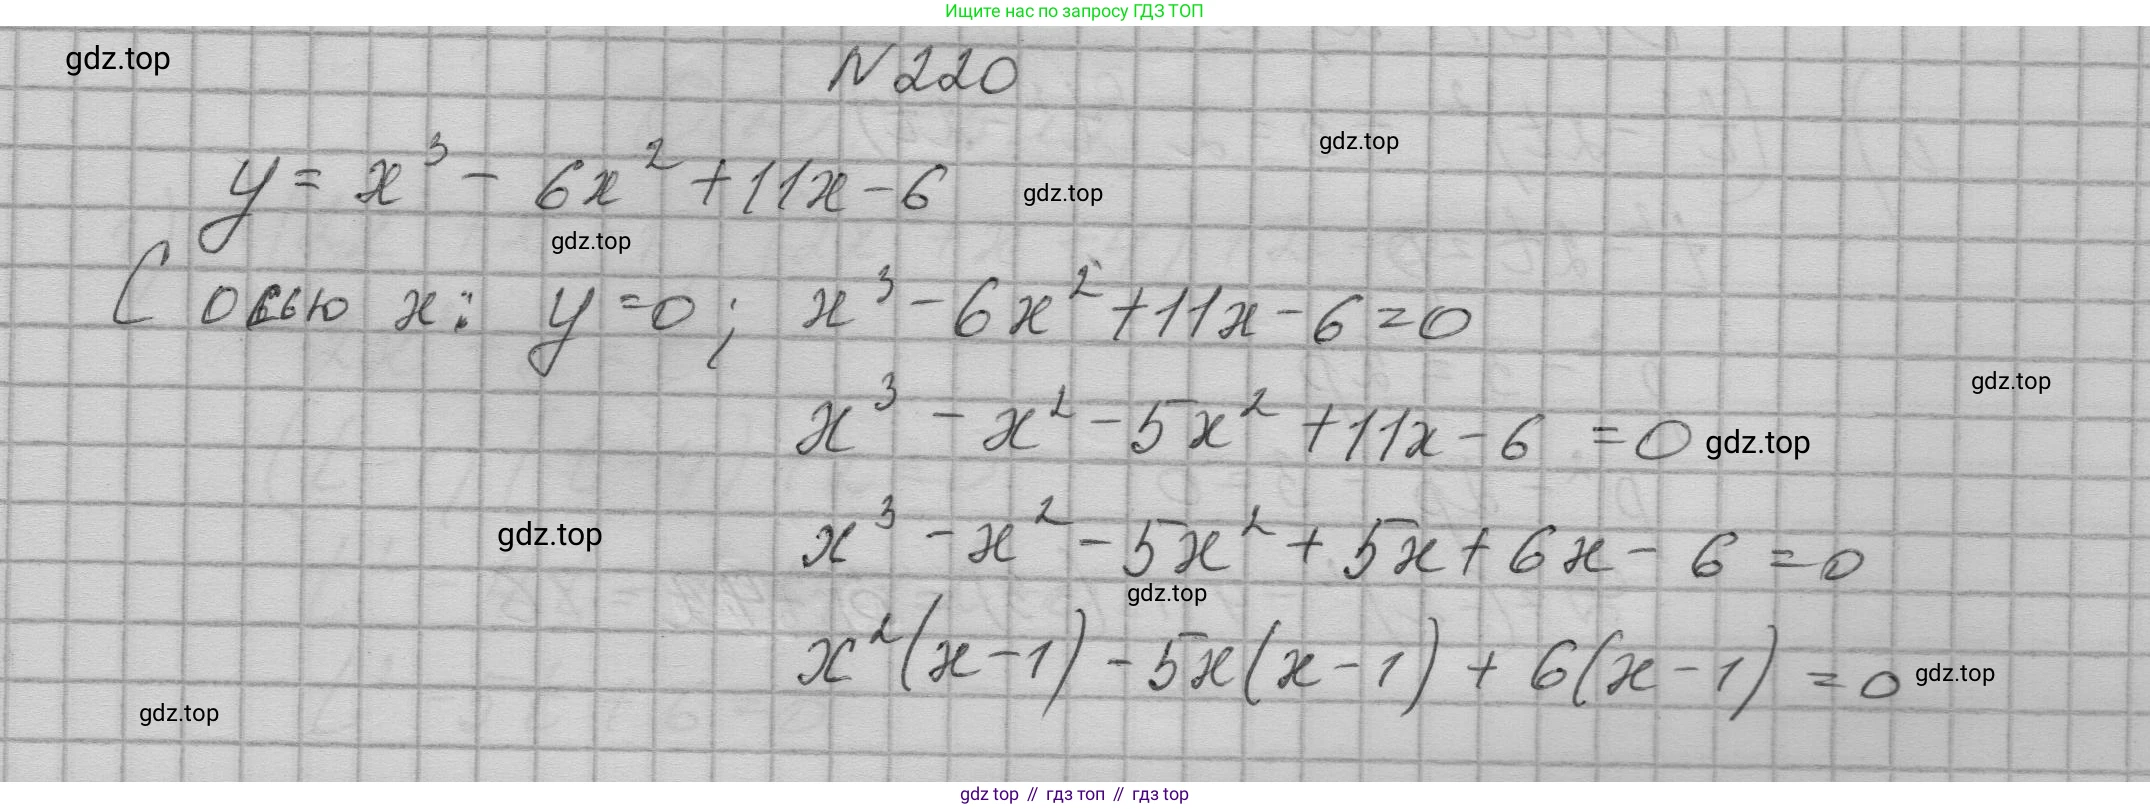 Ищите нас по запросу ГДЗ ТОП
gdz.top
N220
gdz.top
y = x³ - 6x² + 11x - 6
gdz.top
gdz.top
С осью x: y = 0; x³ - 6x² + 11x - 6 = 0
gdz.top
x³ - x² - 5x² + 11x - 6 = 0
gdz.top
gdz.top
x³ - x² - 5x² + 5x + 6x - 6 = 0
gdz.top
x²(x - 1) - 5x(x - 1) + 6(x - 1) = 0
gdz.top
gdz.top
gdz top // гдз топ // gdz top